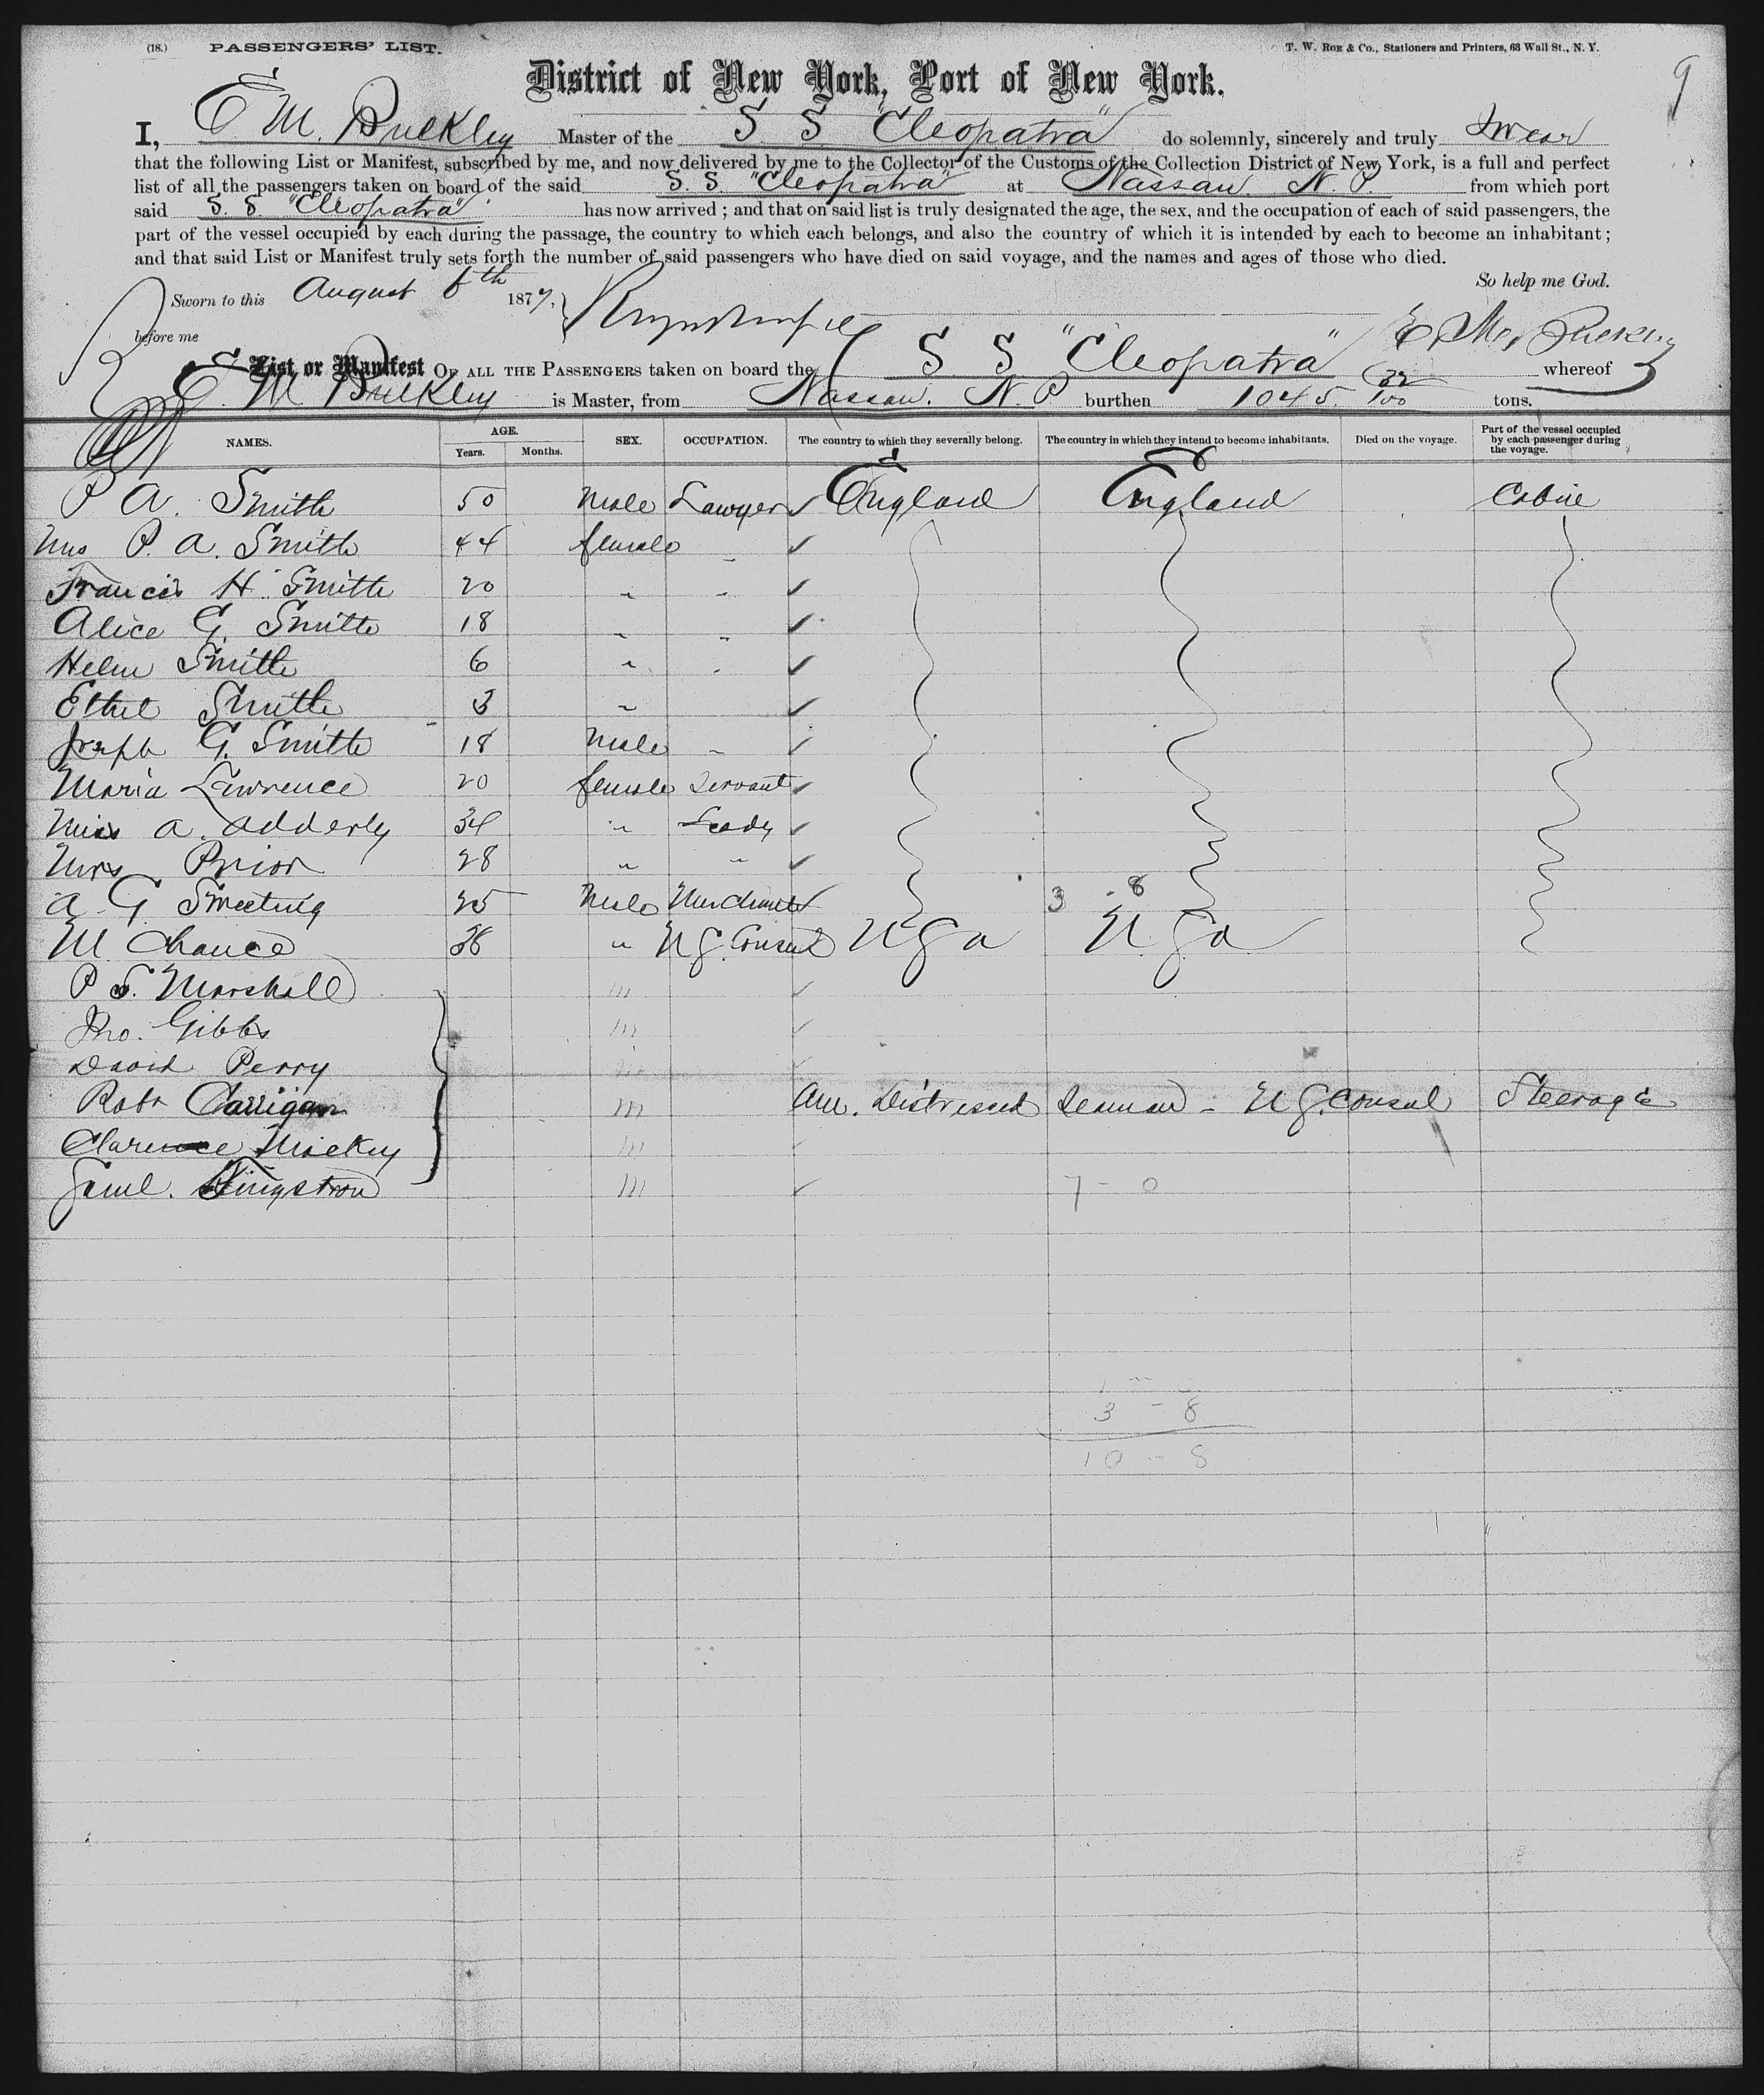 (18.) PASSENGERS' LIST. T. W. Roe & Co., Stationers and Printers, 63 Wall St., N. Y.
9
District of New York, Port of New York.
I, E M. Bulkley Master of the S S "Cleopatra" do solemnly, sincerely and truly Swear
that the following List or Manifest, subscribed by me, and now delivered by me to the Collector of the Customs of the Collection District of New York, is a full and perfect
list of all the passengers taken on board of the said S. S. "Cleopatra" at Nassau N. P from which port
said S. S. "Cleopatra" has now arrived ; and that on said list is truly designated the age, the sex, and the occupation of each of said passengers, the
part of the vessel occupied by each during the passage, the country to which each belongs, and also the country of which it is intended by each to become an inhabitant ;
and that said List or Manifest truly sets forth the number of said passengers who have died on said voyage, and the names and ages of those who died.
So help me God.
Sworn to this August 6th 1877,
before me E M. Bulkley
List or Manifest OF ALL THE PASSENGERS taken on board the S S "Cleopatra" whereof
E. M Bulkley is Master, from Nassau. N. P burthen 1045 32/100 tons.
NAMES. AGE. Years. Months. SEX. OCCUPATION. The country to which they severally belong. The country in which they intend to become inhabitants. Died on the voyage. Part of the vessel occupied by each passenger during the voyage.
P A. Smith 50 Male Lawyer ✓ England England Cabin
Mrs P. A. Smith 44 female - ✓
Francis H. Smith 20 " - ✓
Alice G. Smith 18 " - ✓
Helen Smith 6 " - ✓
Ethel Smith 3 " ✓
Joseph G. Smith 18 Male - ✓
Maria Lawrence 20 female Servant ✓
Miss A. Adderly 34 " Lady ✓
Mrs Prior 28 " " ✓
A. G. Sweeting 25 Male Merchant ✓ 3 - 8
M. Chance 36 " U S. Consul U S a U. S a
P S. Marshall ✓
Jno. Gibbs ✓
David Perry ✓
Robt Carrigan Am. Distressed Seaman - U S. Consul Steerage
Clarence Mickey ✓
Saml. Kingston ✓ 7 - 0
3 - 8
10 - 8